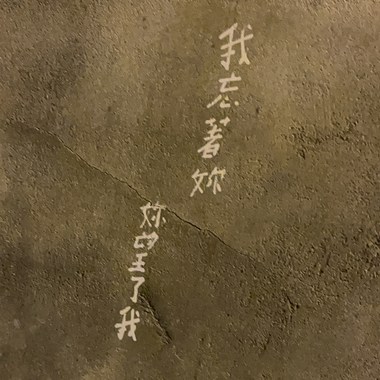 我忘著妳
妳望了我